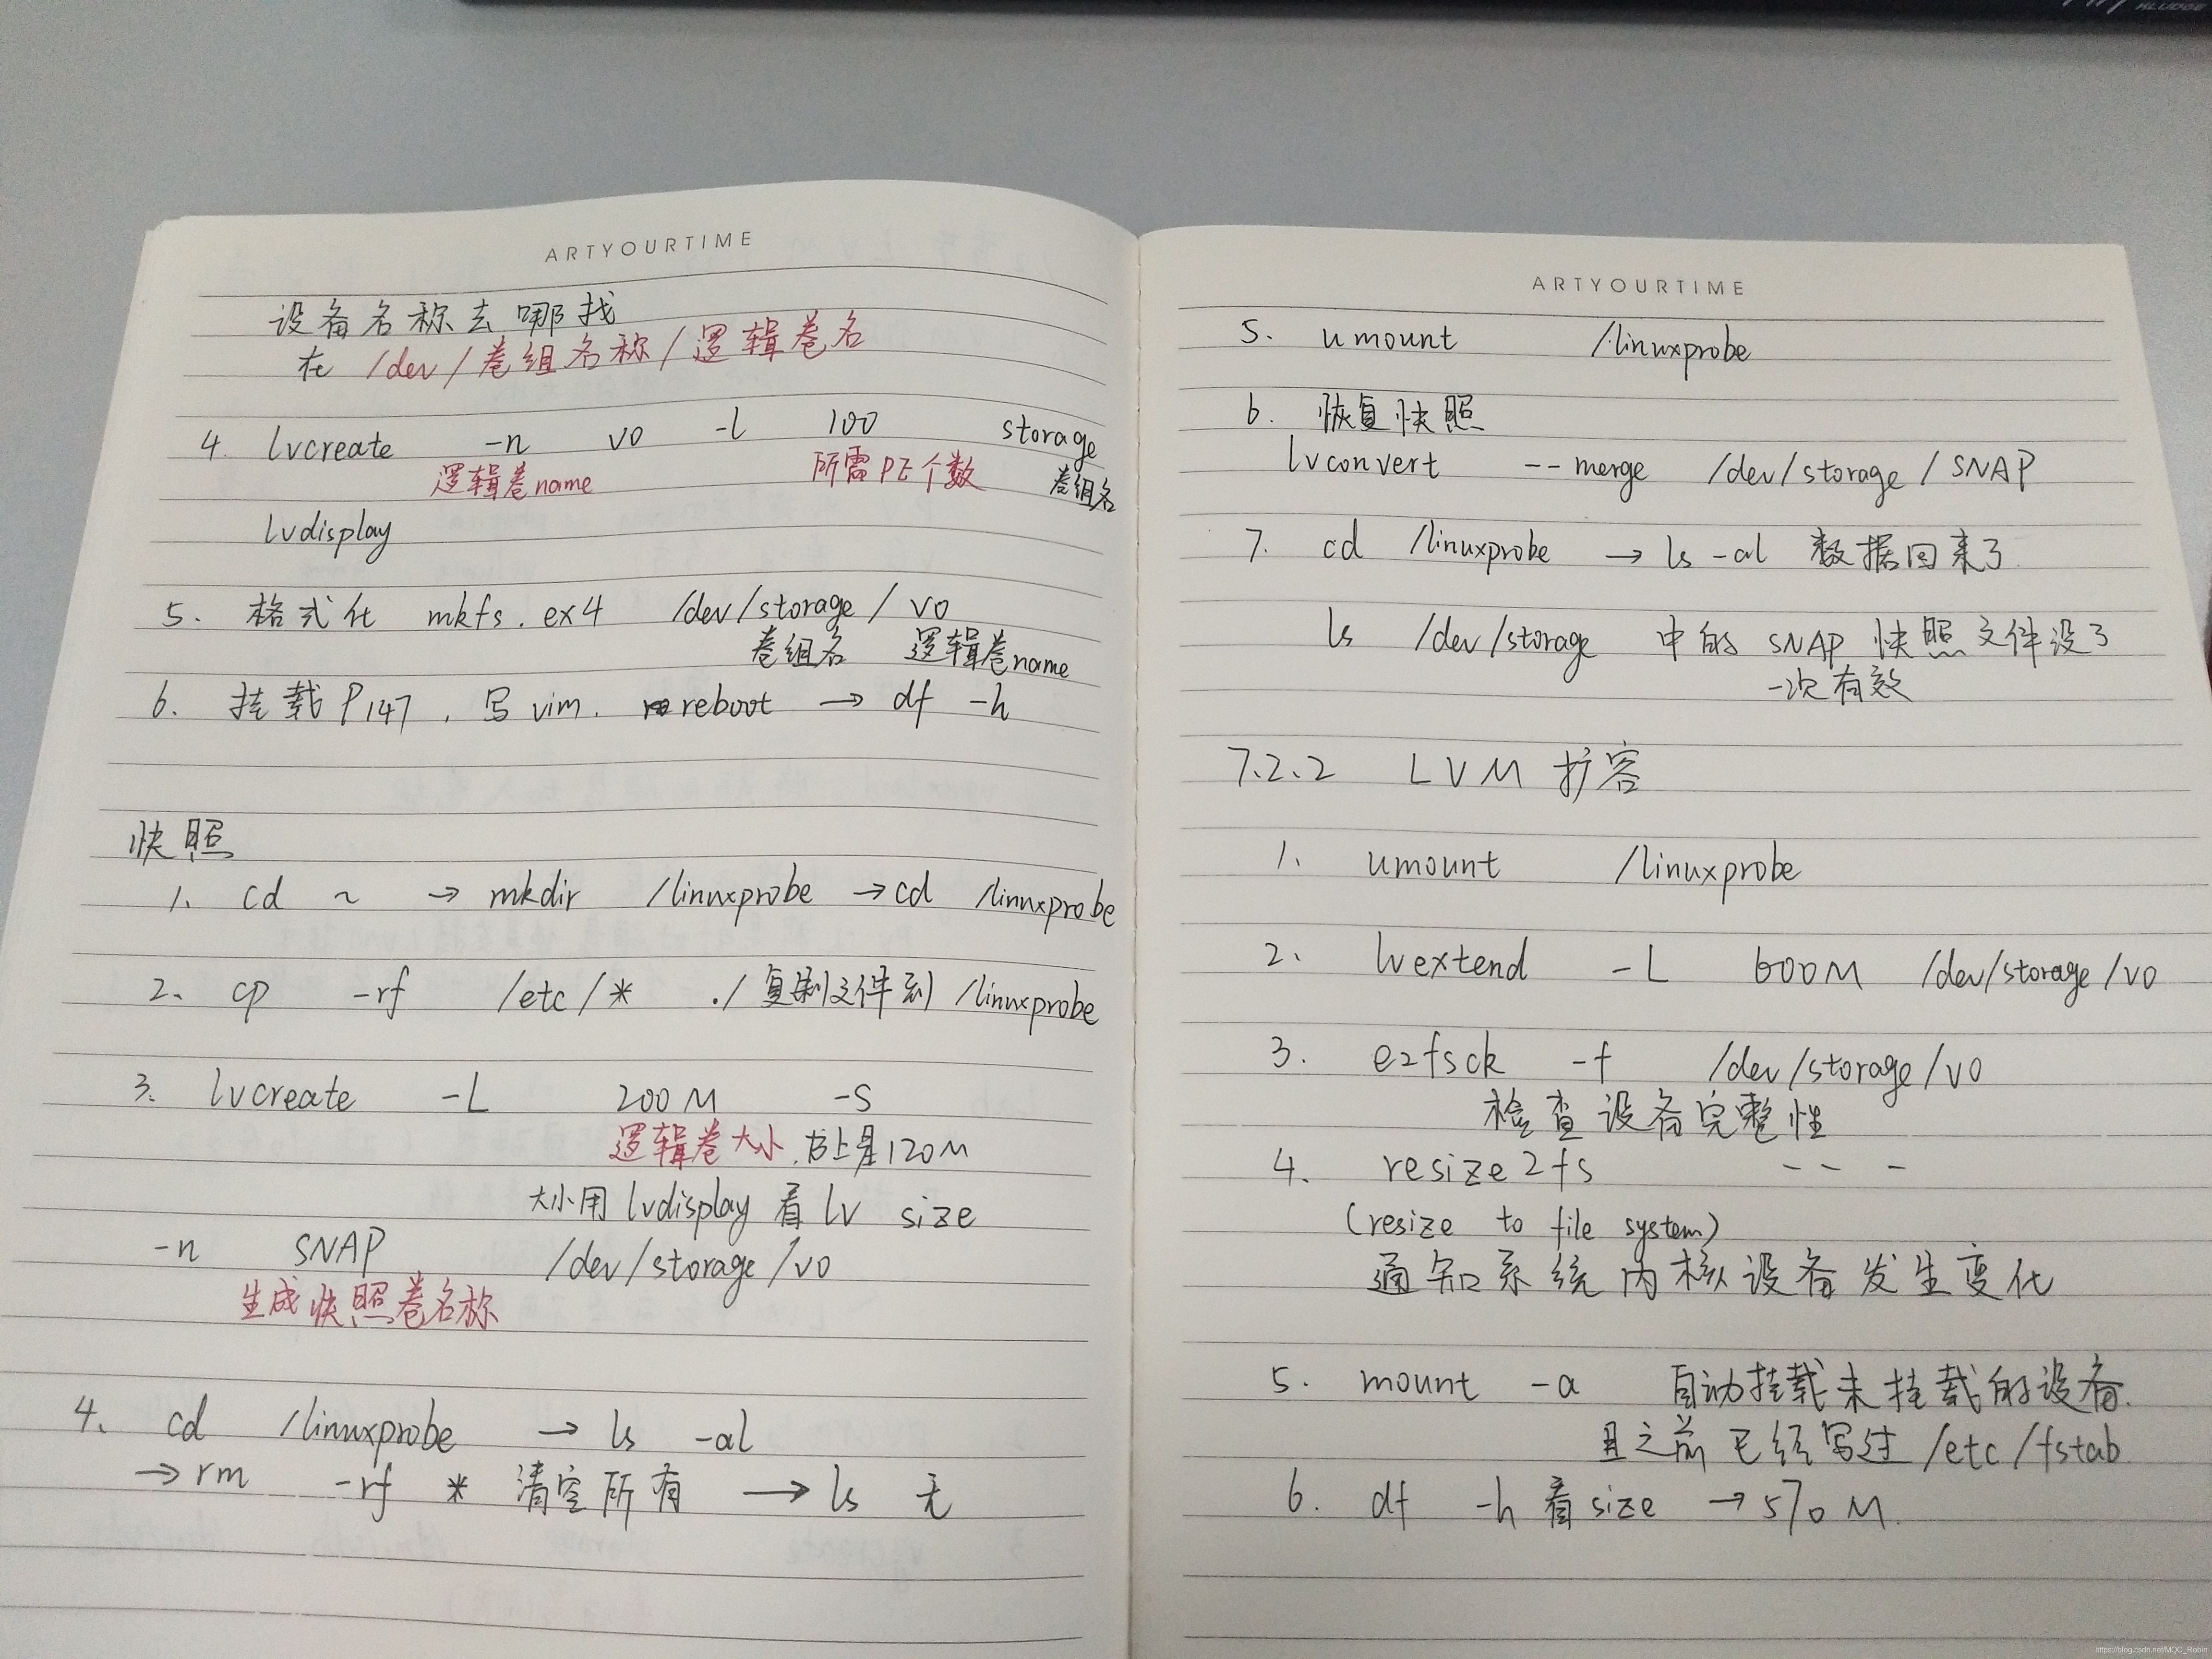 ARTYOURTIME
设备名称去哪找
在 /dev/卷组名称/逻辑卷名
4. lvcreate -n vo -l 100 storage
逻辑卷name 所需PE个数 卷组名
lvdisplay
5. 格式化 mkfs.ex4 /dev/storage/vo
卷组名 逻辑卷name
6. 挂载P147, 写vim. reboot → df -h
快照
1. cd ~ → mkdir /linuxprobe → cd /linuxprobe
2、 cp -rf /etc/* ./ 复制文件到 /linuxprobe
3. lvcreate -L 200M -s
逻辑卷大小.书上是120M
大小用 lvdisplay 看 lv size
-n SNAP /dev/storage/vo
生成快照卷名称
4、 cd /linuxprobe → ls -al
→ rm -rf * 清空所有 → ls 无
ARTYOURTIME
5. umount /linuxprobe
6. 恢复快照
lvconvert --merge /dev/storage/SNAP
7. cd /linuxprobe → ls -al 数据回来了
ls /dev/storage 中的 SNAP 快照文件没了
一次有效
7.2.2 LVM 扩容
1. umount /linuxprobe
2. lvextend -L 600M /dev/storage/vo
3. e2fsck -f /dev/storage/vo
检查设备完整性
4. resize2fs - - -
(resize to file system)
通知系统内核设备发生变化
5. mount -a 自动挂载未挂载的设备.
且之前已经写过 /etc/fstab
6. df -h 看size → 570M.
https://blog.csdn.net/MQC_Robin